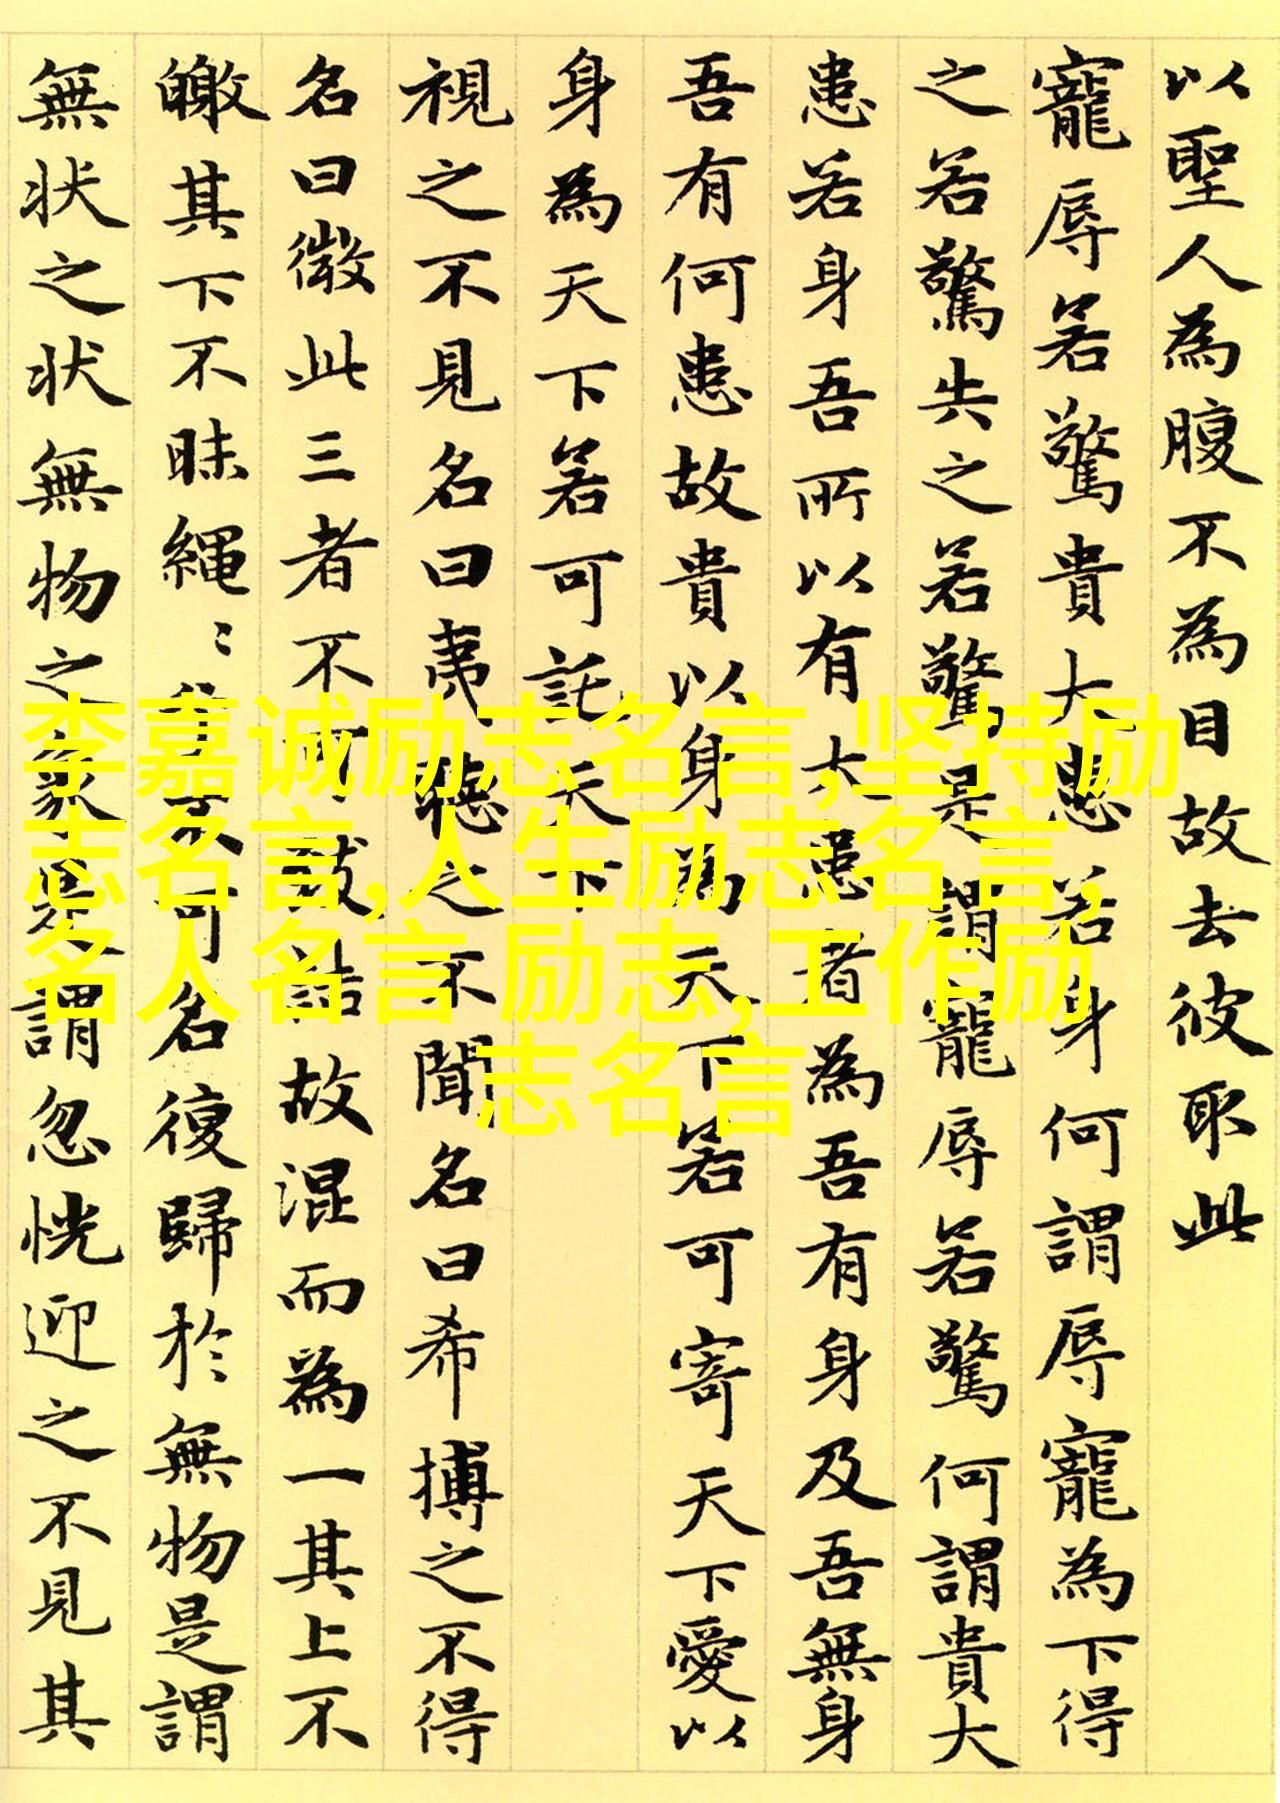 以聖人為腹不為目故去彼取此
寵辱若驚貴大患若身何謂辱寵為下得
之若驚失之若驚是謂寵辱若驚何謂貴大
患若身吾所以有大患者為吾有身及吾無身
吾有何患故貴以身為天下若可寄天下愛以
身為天下若可託天下
視之不見名曰夷聽之不聞名曰希搏之不得
名曰微此三者不可致詰故混而為一其上不
皦其下不昧繩〻兮不可名復歸於無物是謂
無状之状無物之象是謂忽恍迎之不見其
李嘉诚励志名言,坚持励
志名言,人生励志名言,
名人名言 励志,工作励
志名言